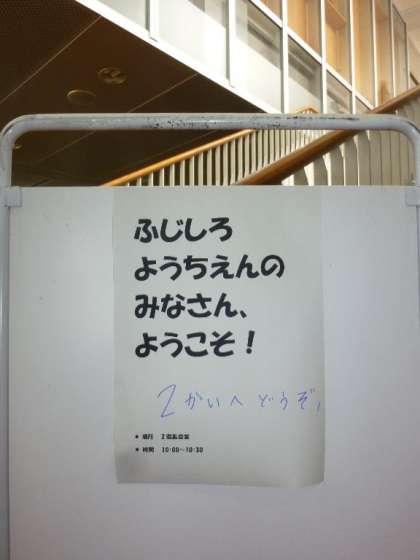 ふじしろ
ようちえんの
みなさん、
ようこそ！
2かいへ どうぞ,
● 場所 2階集会室
● 時間 10:00～10:30